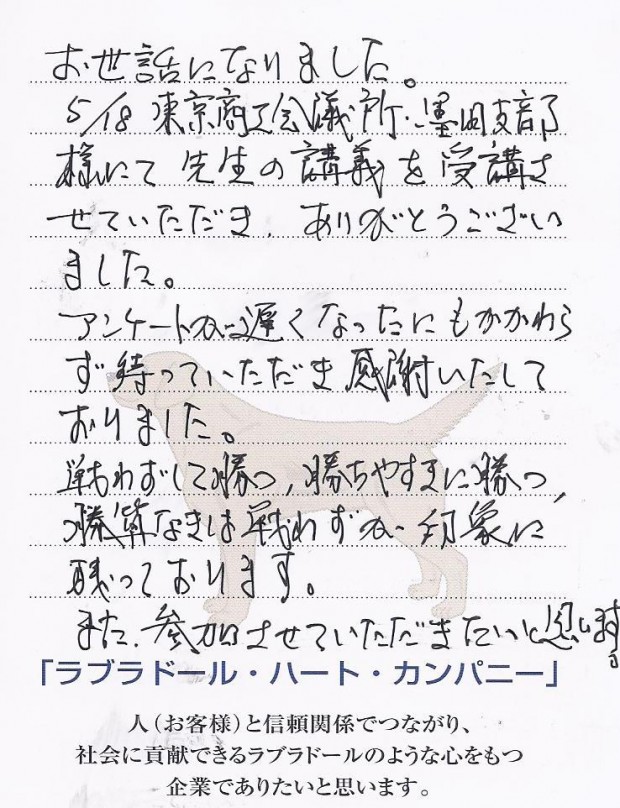 お世話になりました。
5/18 東京商工会議所・墨田支部
様にて 先生の講義を受講さ
せていただき、ありがとうござい
ました。
アンケートが遅くなったにもかかわら
ず待っていただき感謝いたして
おりました。
戦わずして勝つ、勝ちやすきに勝つ、
勝算なきは戦わずが印象に
残っております。
また、参加させていただきたいと思います。
「ラブラドール・ハート・カンパニー」
人（お客様）と信頼関係でつながり、
社会に貢献できるラブラドールのような心をもつ
企業でありたいと思います。